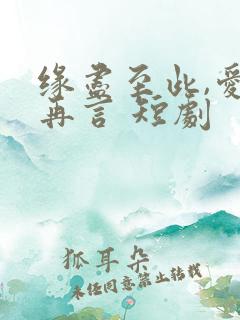 缘尽至此,爱
再言 短剧
狐耳朵
未经同意禁止转载